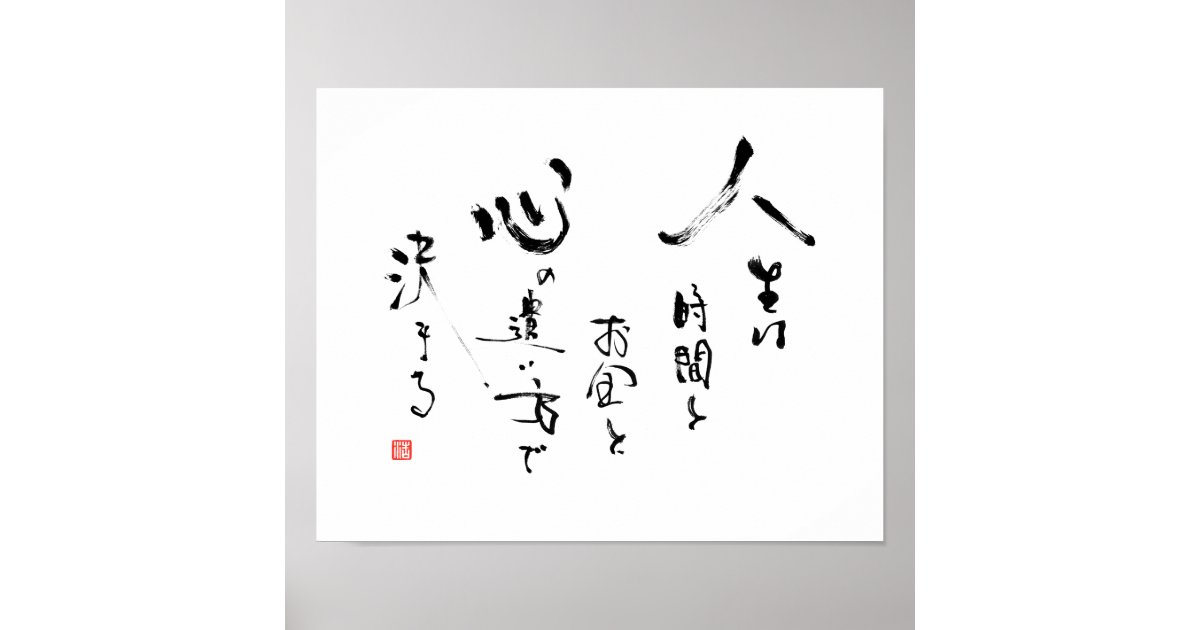 人生は
時間と
お金と
心の遣い方で
決まる
浩